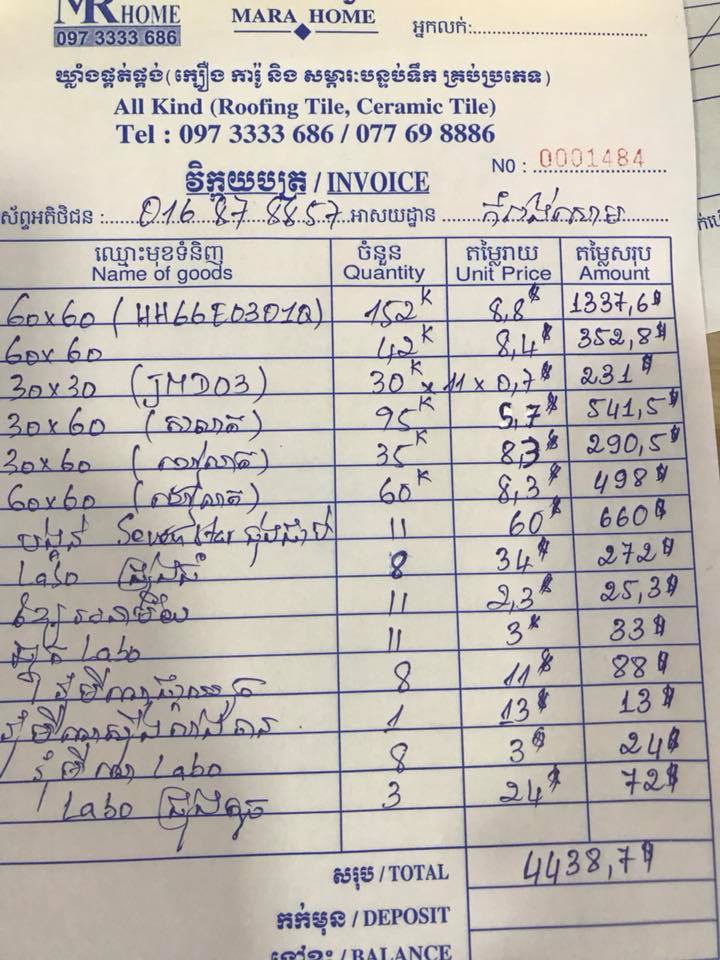 MR HOME
MARA HOME
097 3333 686
អ្នកលក់:
ឃ្លាំងផ្គត់ផ្គង់(ក្បឿង ការ៉ូ និង សម្ភារៈបន្ទប់ទឹក គ្រប់ប្រភេទ)
All Kind (Roofing Tile, Ceramic Tile)
Tel : 097 3333 686 / 077 69 8886
N0 : 0001484
វិក្កយបត្រ / INVOICE
ស័ព្ទអតិថិជន : 016 87 8857 អាសយដ្ឋាន កំពង់សោម
ឈ្មោះមុខទំនិញ ចំនួន តម្លៃរាយ តម្លៃសរុប
Name of goods Quantity Unit Price Amount
60x60 (HH66E0301Q) 152K 8,8$ 1337,6$
60x60 42K 8,4$ 352,8$
30x30 (JMD03) 30K x 11 x 0,7$ 231$
30x60 95K 5,7$ 541,5$
30x60 35K 8,3$ 290,5$
60x60 60K 8,3$ 498$
បង្គន់ 11 60$ 660$
Labo 8 34$ 272$
11 2,3$ 25,3$
Labo 11 3$ 33$
8 11$ 88$
1 13$ 13$
Labo 8 3$ 24$
Labo ជ្រុងតូច 3 24$ 72$
សរុប / TOTAL 4438,7$
កក់មុន / DEPOSIT
នៅខ្វះ / BALANCE